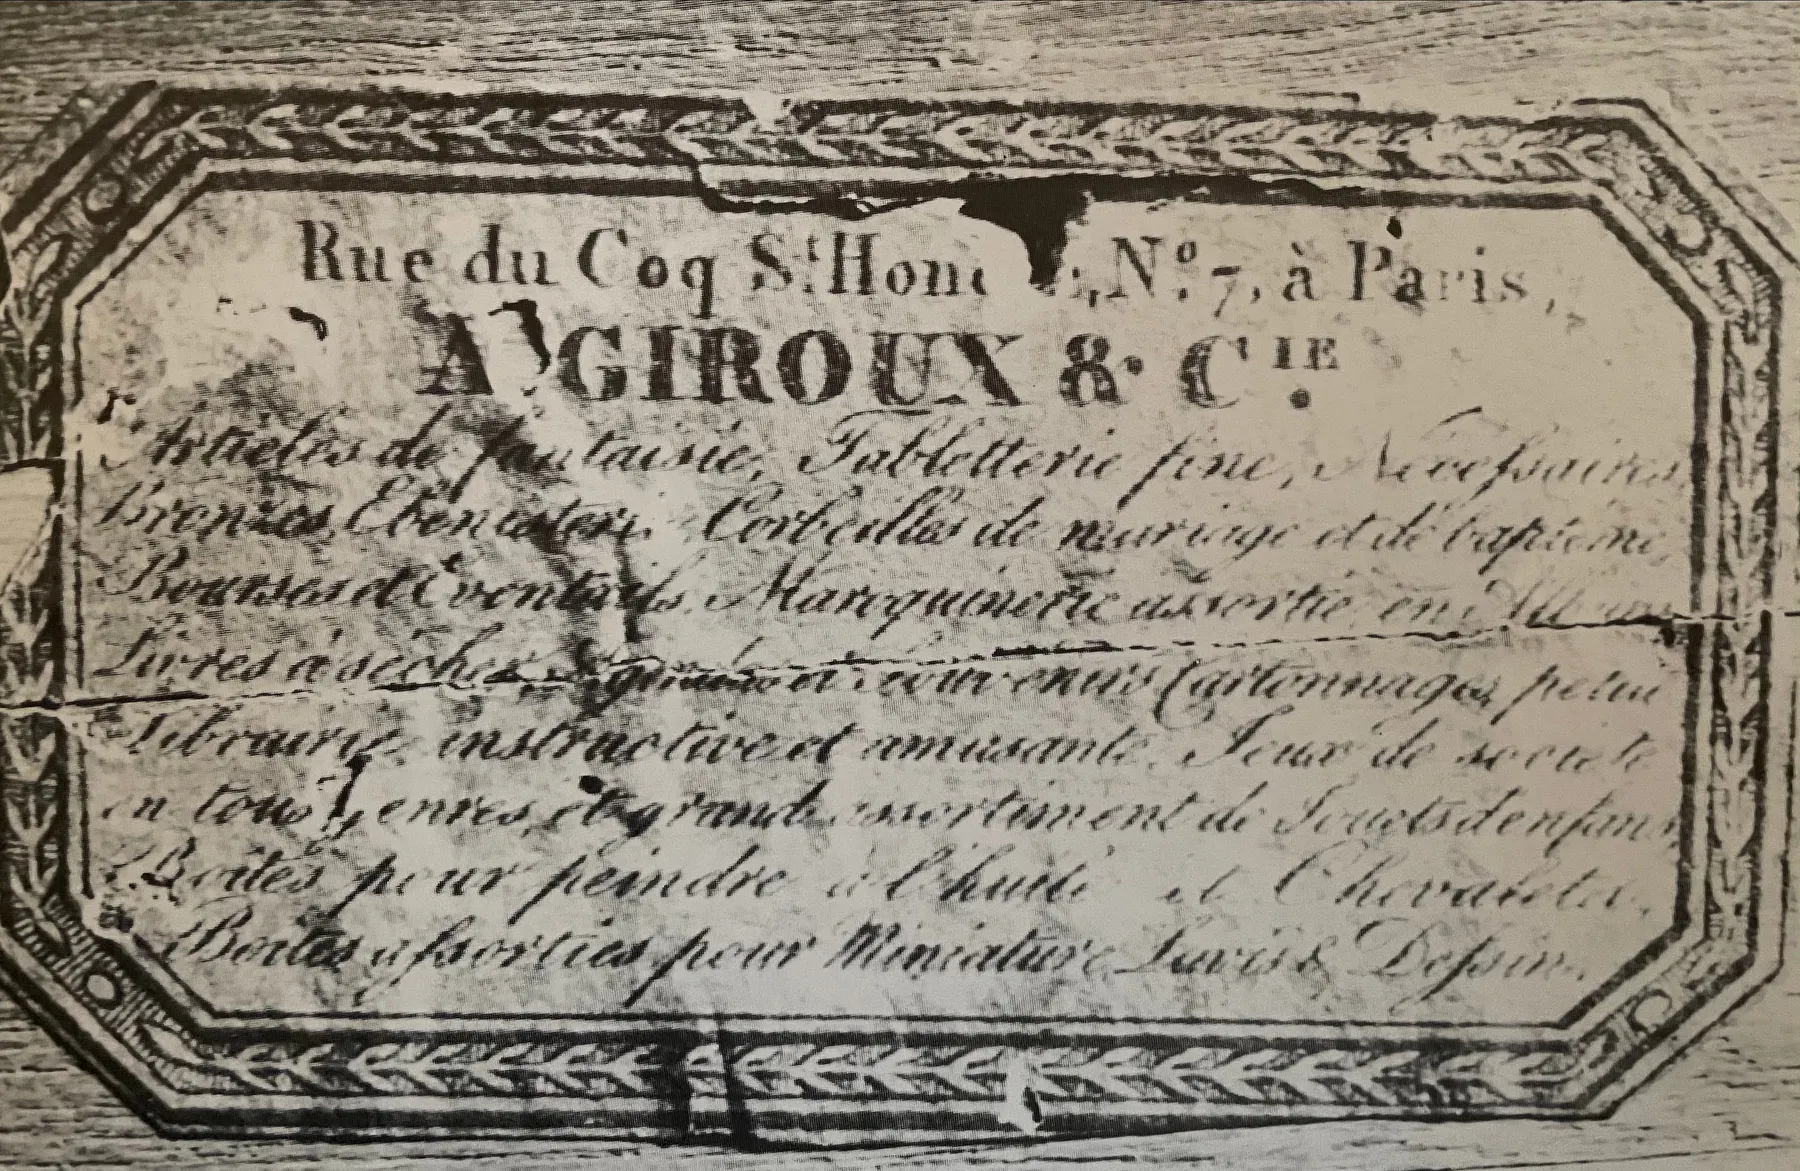 Rue du Coq St. Hon , No. 7, à Paris,
A. GIROUX & CIE.
Articles de fantaisie, Tabletterie fine, Nécessaires,
Bronzes, Ebenisterie, Corbeilles de mariage et de baptême,
Bourses et Eventails, Maroquinerie assortie en Albums
Livres à sécher, Agendas et souvenirs Cartonnages,
Librairie instructive et amusante, Jeux de société
en tous genres, et grand assortiment de Jouets d'enfans,
Boites pour peindre à l'huile et Chevalets,
Boites assorties pour Miniature, Lavis & Dessin.